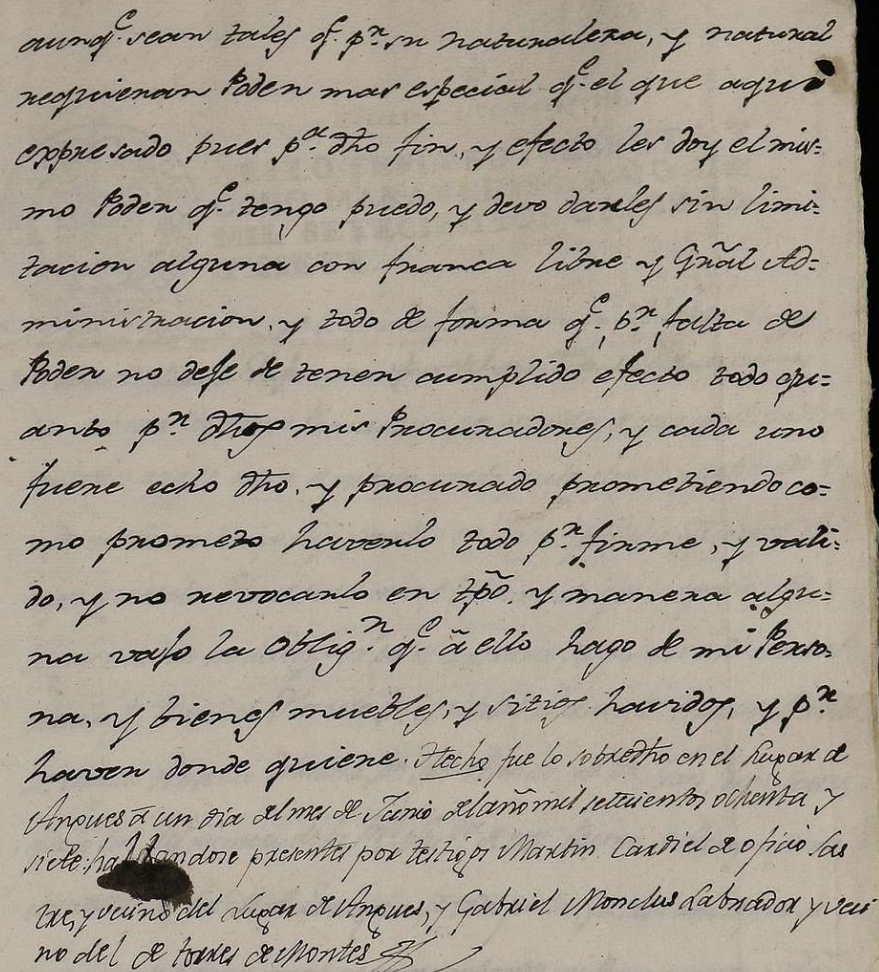 aunq.ᵉ sean tales q.ᵉ p.ʳ su naturaleza, y natural
requieran Poder mas especial q.ᵉ el que aqui
expresado pues p.ᵃ dho fin, y efecto les doy el mis=
mo Poder q.ᵉ tengo puedo, y devo darles sin limi=
tacion alguna con franca libre y Gñal Ad=
ministracion, y todo de forma q.ᵉ p.ʳ falta de
Poder no defe de tener cumplido efecto todo qu=
anto p.ʳ dhos mis Procuradores, y cada uno
fuere echo dho, y procurado prometiendo co=
mo prometo haverlo todo p.ʳ firme, y vali=
do, y no revocarlo en tpõ, y manera algu=
na vafo la Oblig.ⁿ q.ᵉ â ello hago de mi Perso=
na, y bienes muebles, y sitios havidos, y p.ʳ
haver donde quiere. Hecho fue lo sobredho en el Lugar de
Angues â un dia del mes de Junio del año mil setecientos ochenta y
siete: hallandose presentes por testigos Martin Cardiel de oficio Sas
tre, y vecino del Lugar de Angues, y Gabriel Monclus Labrador y veci
no del de torres de Montes